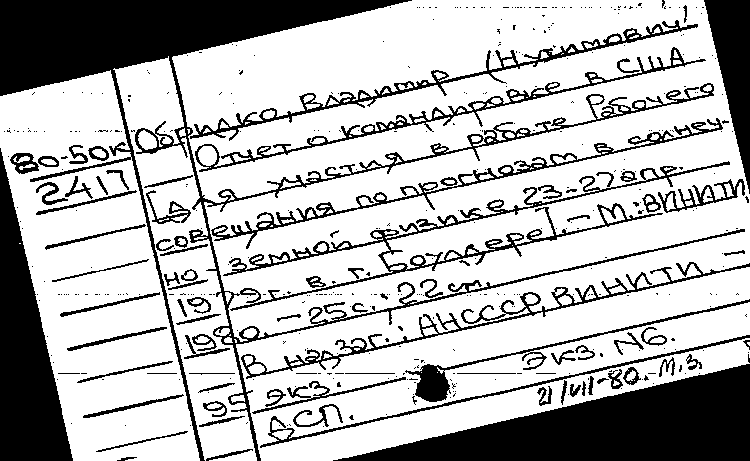 Обридко, Владимир (Нухимович)
80-БОК
2417
Отчет о командировке в США
[для участия в работе Рабочего
совещания по прогнозам в солнеч-
но-земной физике, 23-27 апр.
1979г. в г. Боулдере]. - М.: ВИНИТИ,
1980. - 25с.; 22 см.
В надзаг.: АНСССР, ВИНИТИ. -
95 экз. Экз. N6.
ДСП.
21/VII-80. М.З.